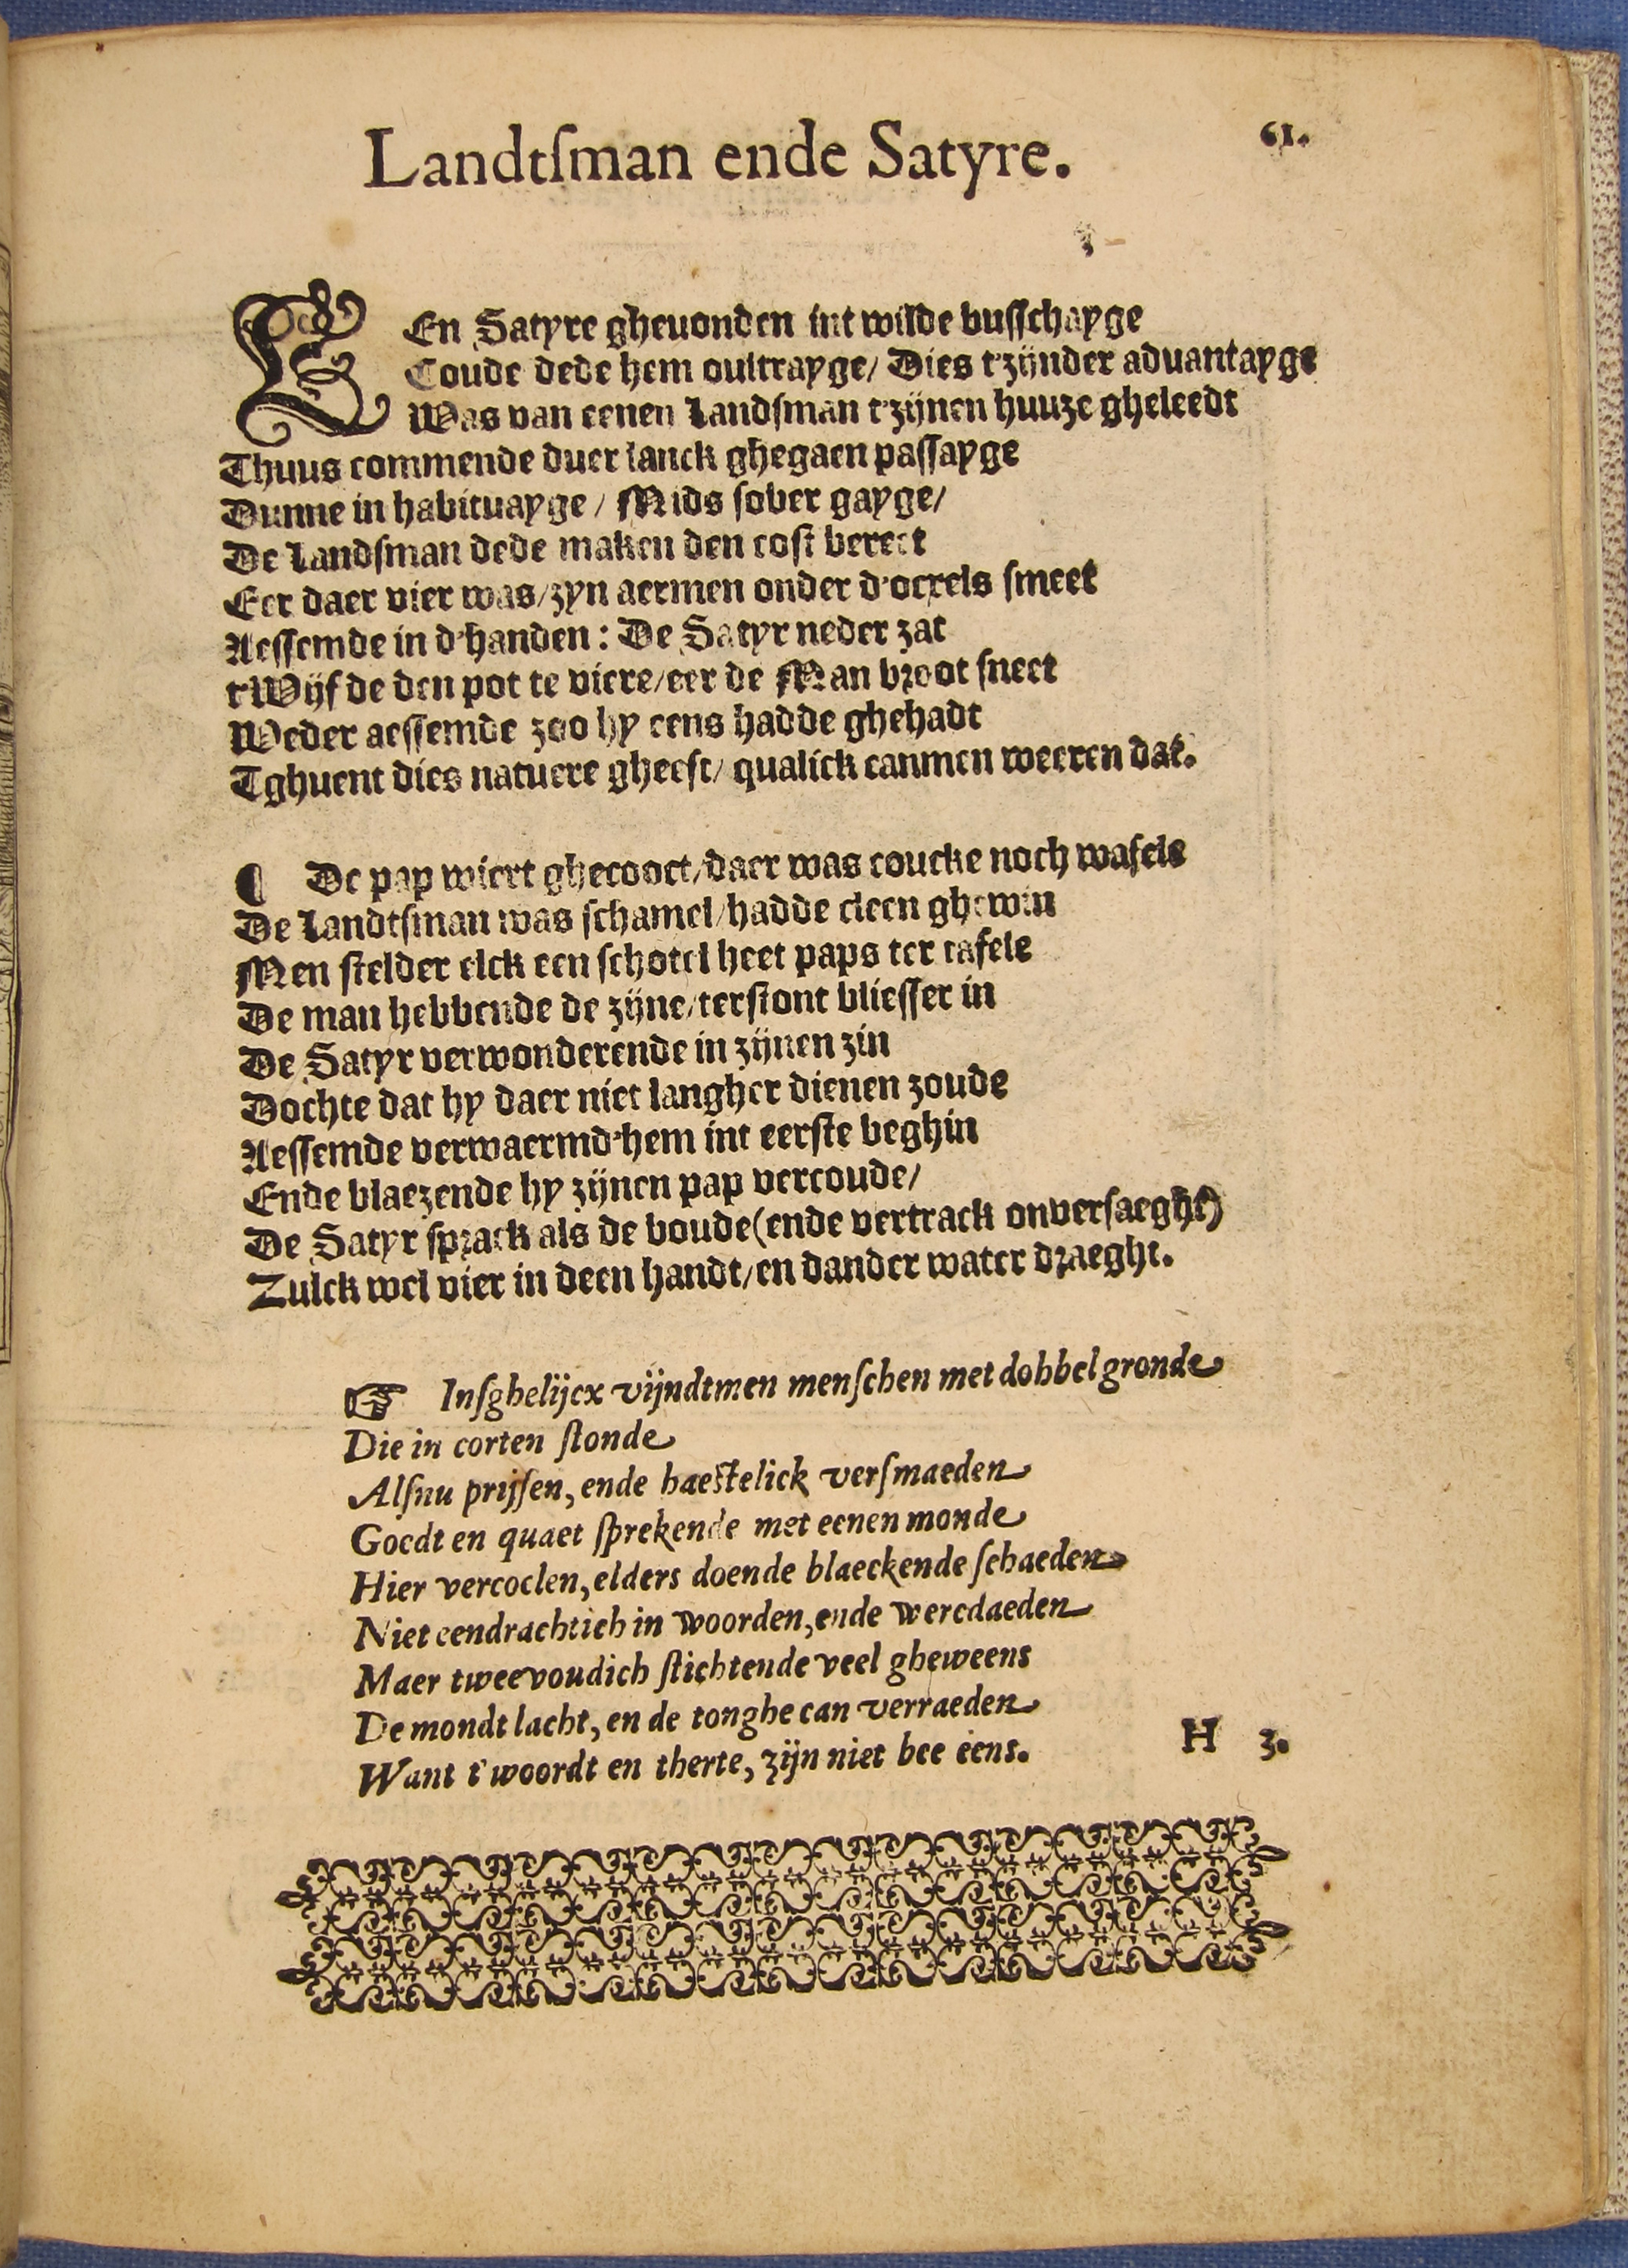 Landtſman ende Satyre.
61.
EEn Satyre gheuonden int wilde buſſchayge
Coude dede hem oultrayge/ Dies t'zijnder aduantayge
Was van eenen Landſman t'zijnen huuze gheleedt
Thuus commende duer lanck ghegaen paſſayge
Dunne in habituayge / Mids ſober gayge/
De Landſman dede maken den coſt bereet
Eer daer vier was/zyn aermen onder d'ocxels ſmeet
Aeſſemde in d'handen: De Satyr neder zat
t'Wijf de den pot te viere/eer de Man broot ſneet
Weder aeſſemde zoo hy eens hadde ghehadt
Tghuent dies natuere gheeft/ qualick canmen weeren dat.
¶ De pap wiert ghecooct/daer was coucke noch wafele
De Landtſman was ſchamel/hadde cleen ghewin
Men ſtelder elck een ſchotel heet paps ter tafele
De man hebbende de zijne/terſtont blieſſer in
De Satyr verwonderende in zijnen zin
Dochte dat hy daer niet langher dienen zoude
Aeſſemde verwaermd'hem int eerſte beghin
Ende blaezende hy zijnen pap vercoude/
De Satyr ſprack als de boude(ende vertrack onverſaeght)
Zulck wel vier in deen handt/en dander water draeght.
☞ Inſghelijcx vijndtmen menſchen met dobbel gronde
Die in corten ſtonde
Alſnu prijſen, ende haeſtelick verſmaeden
Goedt en quaet ſprekende met eenen monde
Hier vercoelen, elders doende blaeckende ſchaeden
Niet eendrachtich in woorden, ende wercdaeden
Maer tweevoudich ſtichtende veel gheweens
De mondt lacht, en de tonghe can verraeden
Want t'woordt en therte, zijn niet bee eens.
H 3.